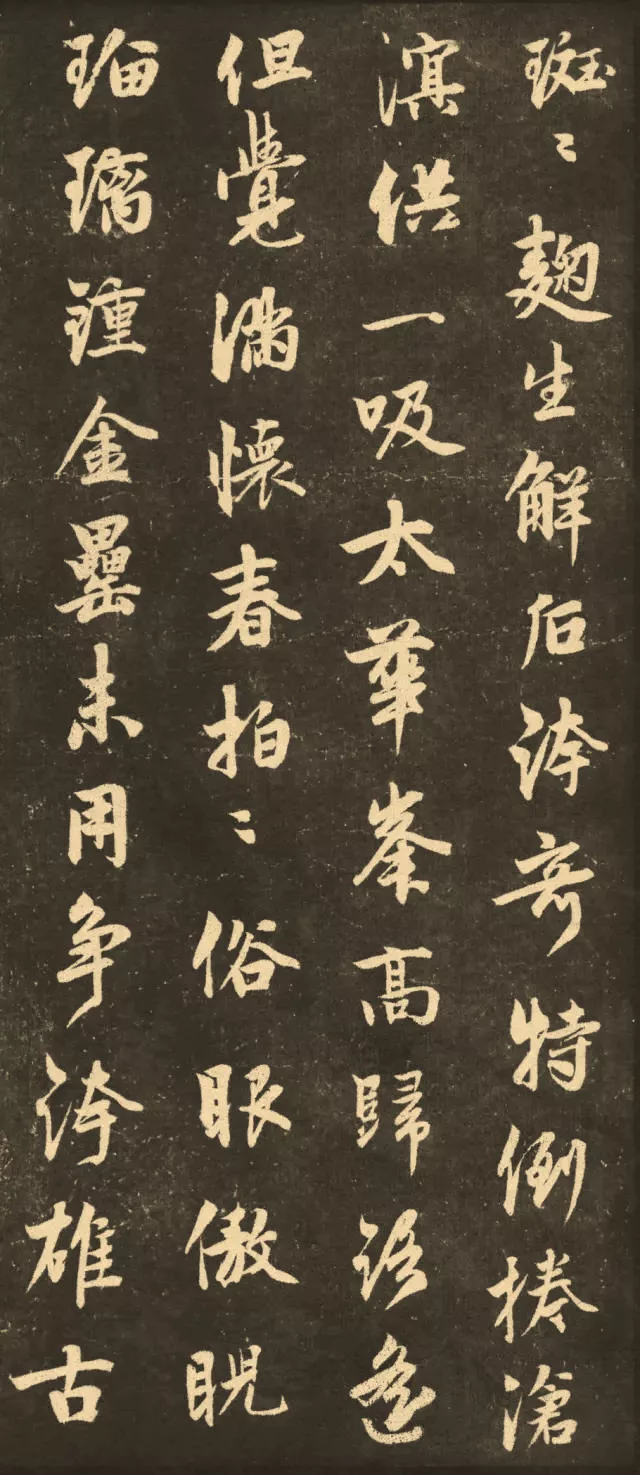 斑〻麹生解后誇奇特倒捲滄
溟供一吸太華峯高歸語遙
但覺滿懷春拍〻俗眼傲睨
瑠璃鍾金罍未用爭誇雄古